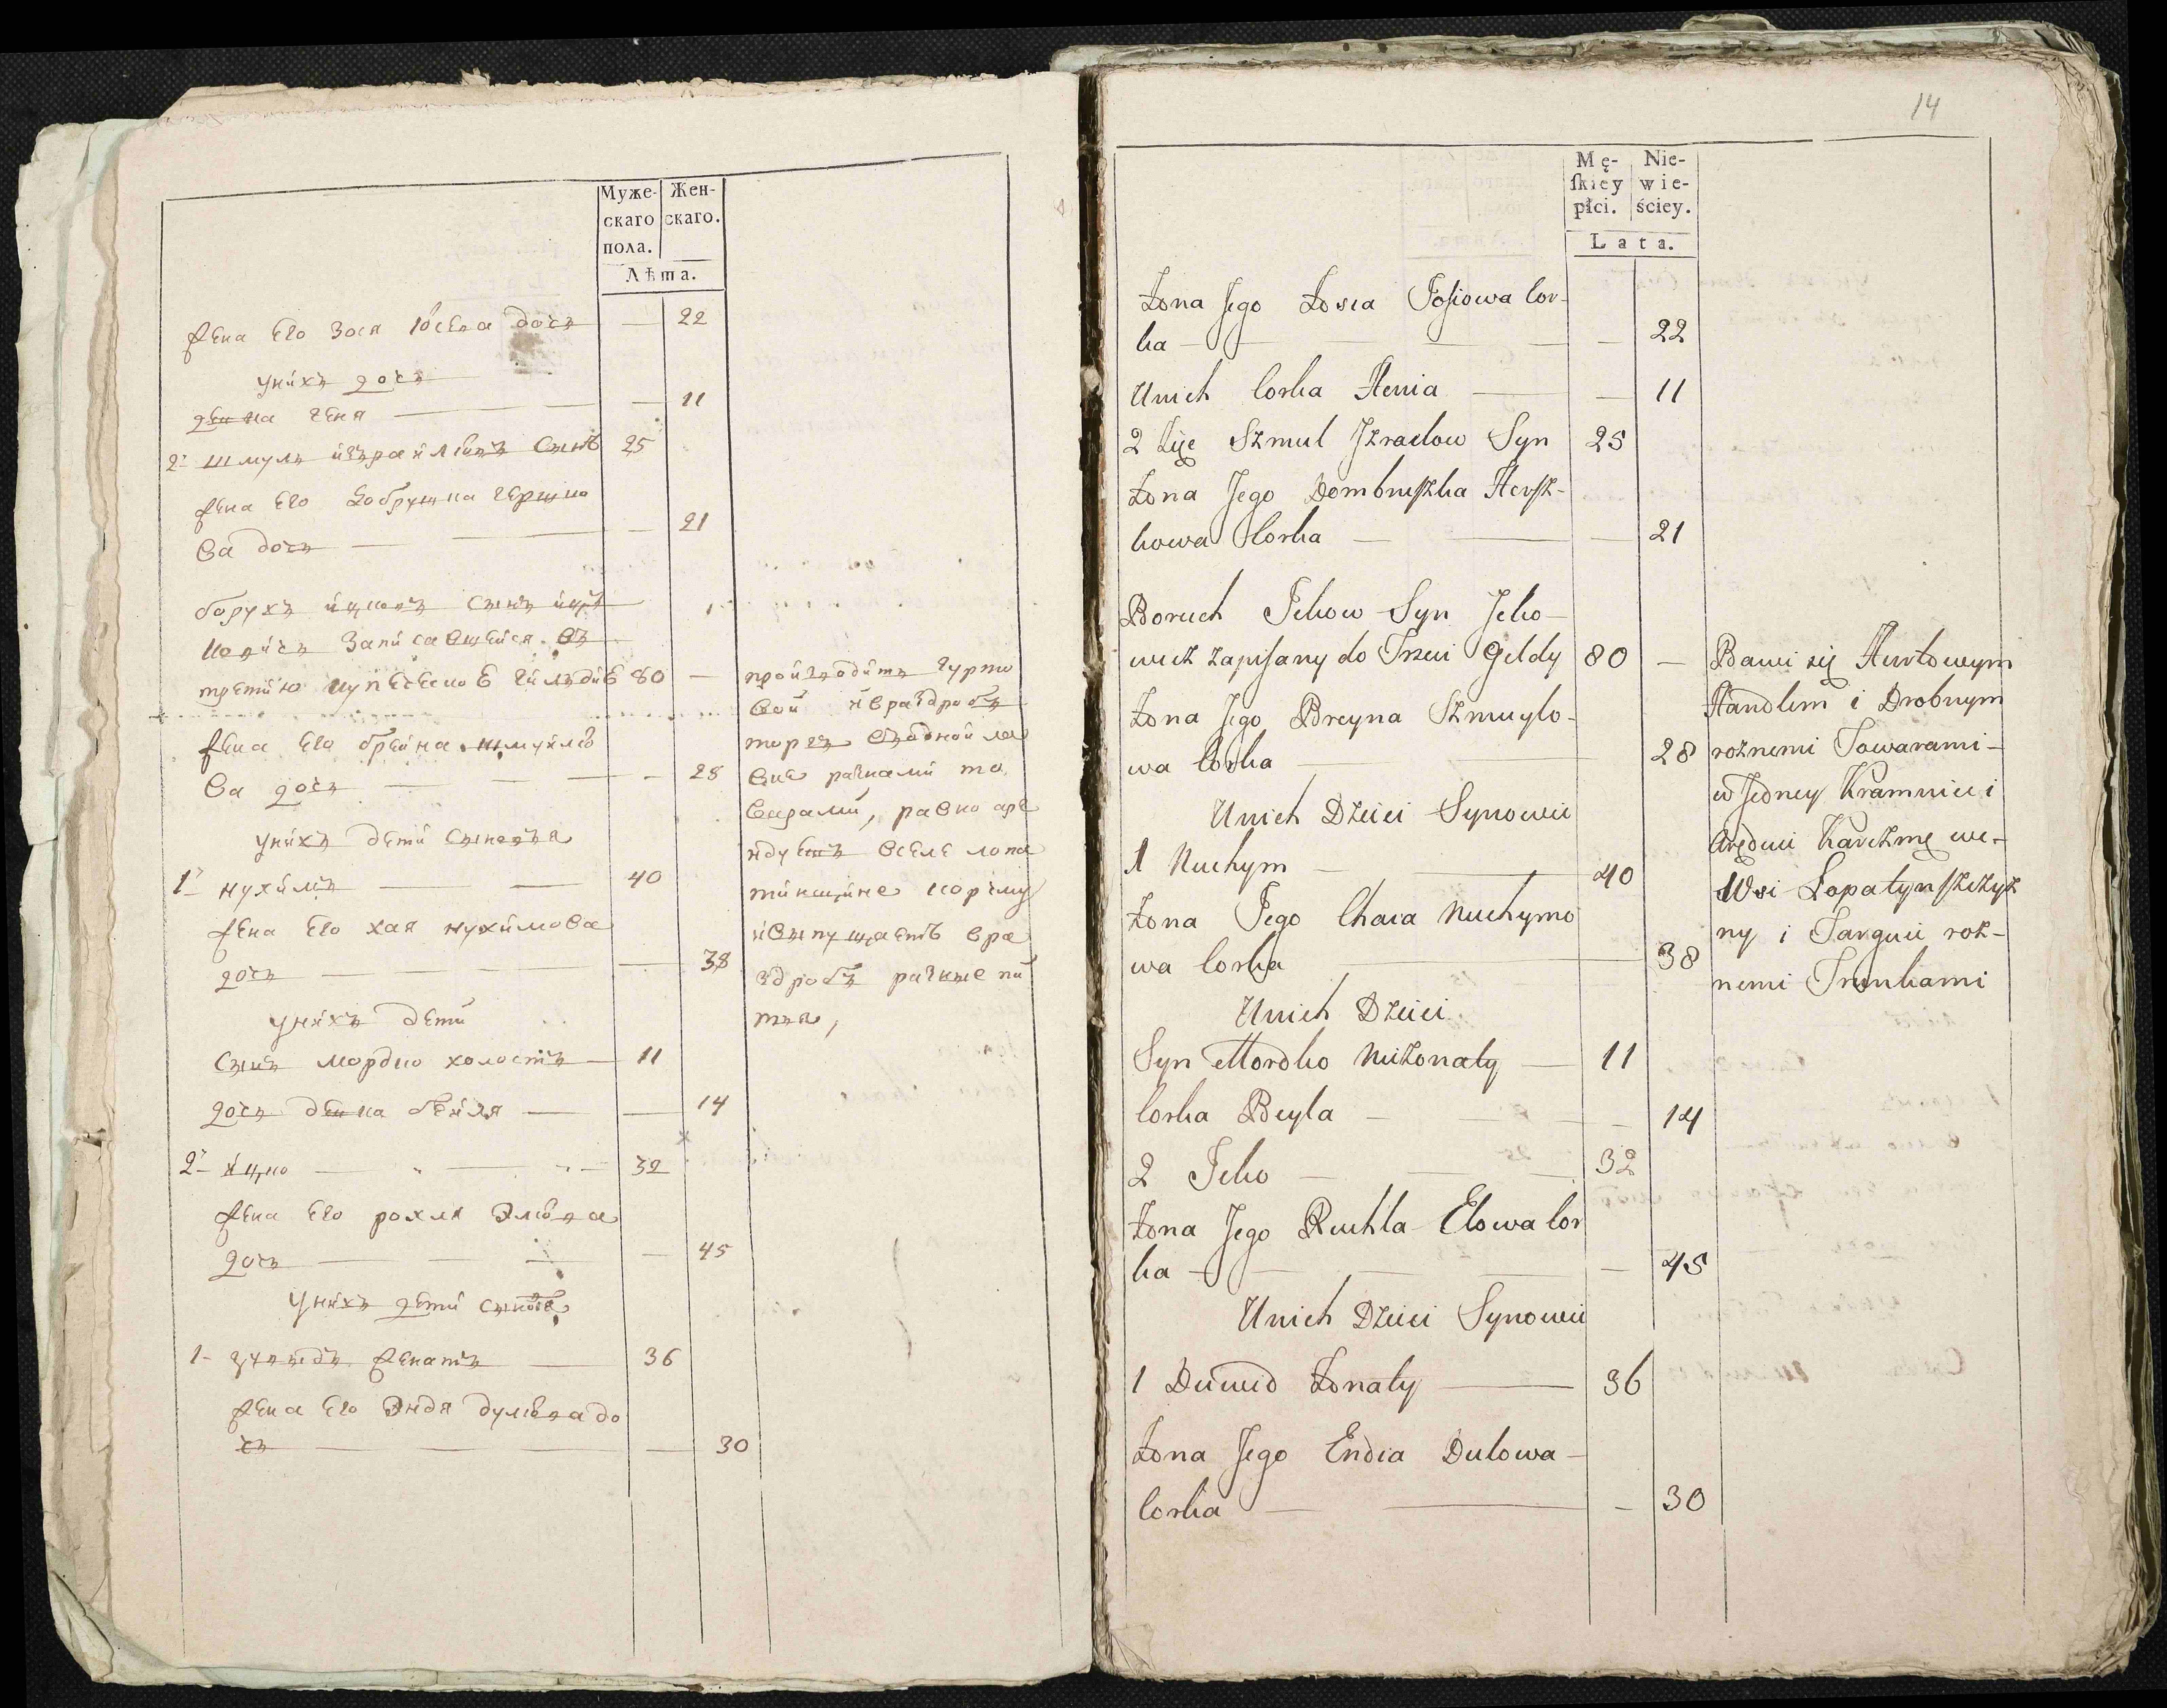 Муже-
скаго
пола.
Жен-
скаго.
Лѣта.
жена Его Зося Іосева дочь — 22
унихъ дочь
девка геня — 11
2 шмуль израилевичъ сынъ 25
жена Его Добрушка гершко
ва дочь — 21
борухъ ицковъ сынъ ицко
вичъ записавшейся въ
третию купеческою гильдию 80 —
жена Его брейна шмуйло
ва дочь — 28
унихъ дети сыновья
1 нухимъ — 40
жена Его хая нухимова
дочь — 38
унихъ дети
сынъ мордко холостъ — 11
дочь девка бейля — 14
2 ицко — 32
жена Его рохля Эльова
дочь — 45
унихъ дети сыновья
1 женатъ — 36
жена Его Эндя дульова до
чь — 30
производитъ гурто
вой и враздробь
торгъ водной ла
вке разными то
варами, равно аре
ндуетъ вселе лопа
тинщине корчму
ивыпущаетъ вра
здробь разные пи
тья,
14
Mę-
skiey
płci.
Nie-
wie-
ściey.
Lata.
Żona Jego Zosia Josiowa Cor-
ka — 22
Unich Corka Henia — 11
2 Szmul Jzraelow Syn 25
Żona Jego Dombruszka Hersz-
kowa Corka — 21
Boruch Jckow Syn Jcko-
wicz zapisany do Trzeci Geldy 80 —
Żona Jego Breyna Szmuylo-
wa Corka — 28
Unich Dzieci Synowie
1 Nuchym — 40
Żona Jego Chaia Nuchymo
wa Corka — 38
Unich Dzieci
Syn Mordko Nieżonaty — 11
Corka Beyla — 14
2 Jcko — 32
Żona Jego Ruchla Elowa Cor
ka — 45
Unich Dzieci Synowie
1 Dawid Żonaty — 36
Żona Jego Endia Dulowa —
Corka — 30
Bawi się Hurtowym
Handlem i Drobnym
roznemi Towarami —
w Jedney Kramnicy i
Aręduie Karczmę we —
Wsi Łopatynszczyz
ny i Targuie roz-
nemi Trunkami